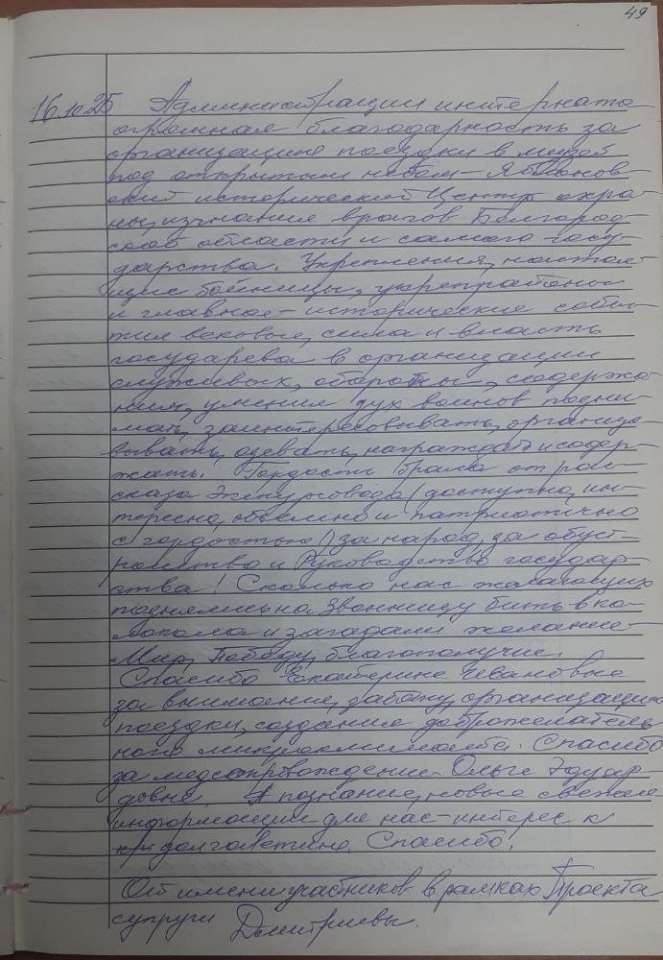 49
16.10.25 Администрации интерната
огромная благодарность за
организацию поездки в музей
под открытым небом – Яблонов-
ский исторический Центр охра-
ны, изгнания врагов Белгород-
ской области и самого госу-
дарства. Укрепления, настоя-
щие бойницы, укрепрайоны
и главное – исторические собы-
тия вековые, сила и власть
государева в организации
служивых, обороны, содержа-
ния, умения дух воинов подни-
мать, заинтересовывать, организо-
вывать, одевать, награждать и содер-
жать. Гордость брала от рас-
сказа Экскурсовода (доступно, ин-
тересно, объемно и патриотично
с гордостью) за народ, за обуст-
ройство и Руководство государ-
ства! Сколько нас желающих
поднялись на Звонницу бить в ко-
локола и загадали желание –
Мир, Победу, благополучие.
Спасибо Екатерине Ивановне
за внимание, заботу, организацию
поездки, создание доброжелатель-
ного микроклимата. Спасибо
за медсопровождение – Ольге Эдуар-
довне. А познание, новые свежие
информации для нас – интерес к
долголетию. Спасибо!
От имени участников в рамках Проекта
супруги Дмитриевы.